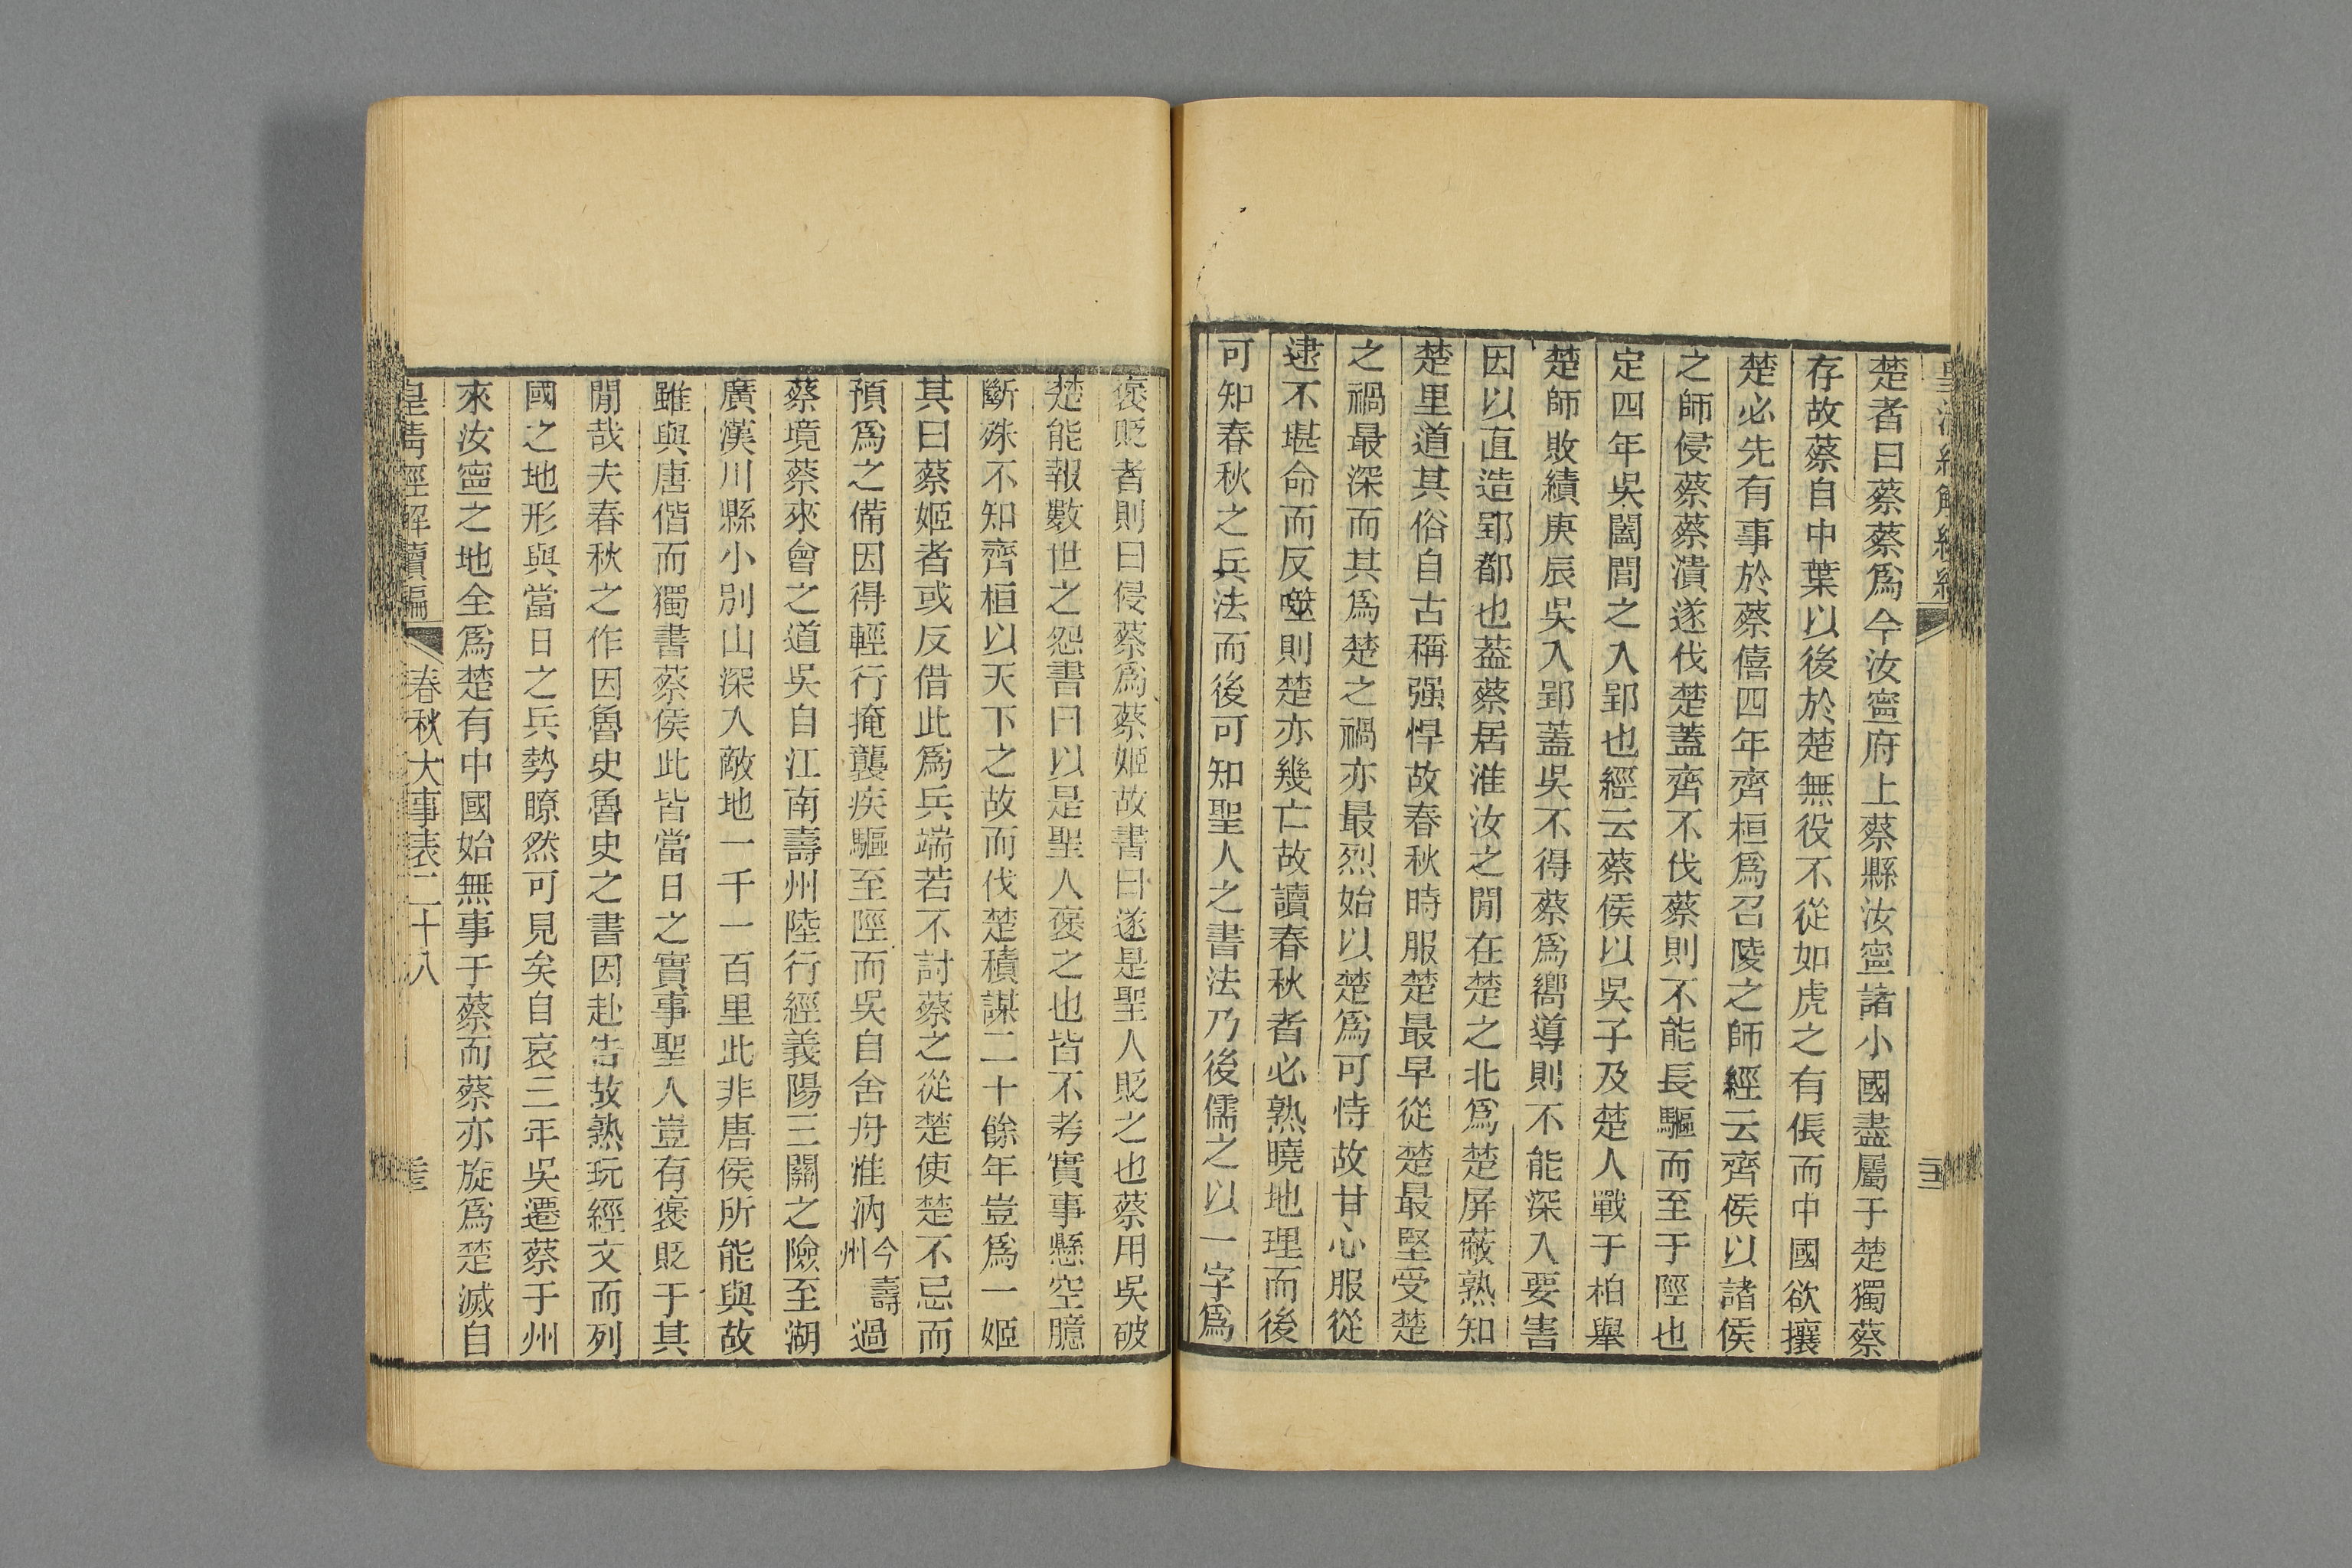 楚者曰蔡蔡爲今汝寧府上蔡縣汝寧諸小國盡屬于楚獨蔡
存故蔡自中葉以後於楚無役不從如虎之有倀而中國欲攘
楚必先有事於蔡僖四年齊桓爲召陵之師經云齊侯以諸侯
之師侵蔡蔡潰遂伐楚蓋齊不伐蔡則不能長驅而至于陘也
定四年吳闔閭之入郢也經云蔡侯以吳子及楚人戰于柏舉
楚師敗績庚辰吳入郢蓋吳不得蔡爲嚮導則不能深入要害
因以直造郢都也葢蔡居淮汝之閒在楚之北爲楚屏蔽熟知
楚里道其俗自古稱强悍故春秋時服楚最早從楚最堅受楚
之禍最深而其爲楚之禍亦最烈始以楚爲可恃故甘心服從
逮不堪命而反噬則楚亦幾亡故讀春秋者必熟曉地理而後
可知春秋之兵法而後可知聖人之書法乃後儒之以一字爲
襃貶者則曰侵蔡爲蔡姬故書曰遂是聖人貶之也蔡用吳破
楚能報數世之怨書曰以是聖人襃之也皆不考實事懸空臆
斷殊不知齊桓以天下之故而伐楚積謀二十餘年豈爲一姬
其曰蔡姬者或反借此爲兵端若不討蔡之從楚使楚不忌而
預爲之備因得輕行掩襲疾驅至陘而吳自舍舟淮汭今壽州過
蔡境蔡來會之道吳自江南壽州陸行經義陽三關之險至湖
廣漢川縣小別山深入敵地一千一百里此非唐侯所能與故
雖與唐偕而獨書蔡侯此皆當日之實事聖人豈有襃貶于其
閒哉夫春秋之作因魯史魯史之書因赴告故熟玩經文而列
國之地形與當日之兵勢瞭然可見矣自哀二年吳遷蔡于州
來汝寧之地全爲楚有中國始無事于蔡而蔡亦旋爲楚滅自
皇淸經解續編 春秋大事表二十八